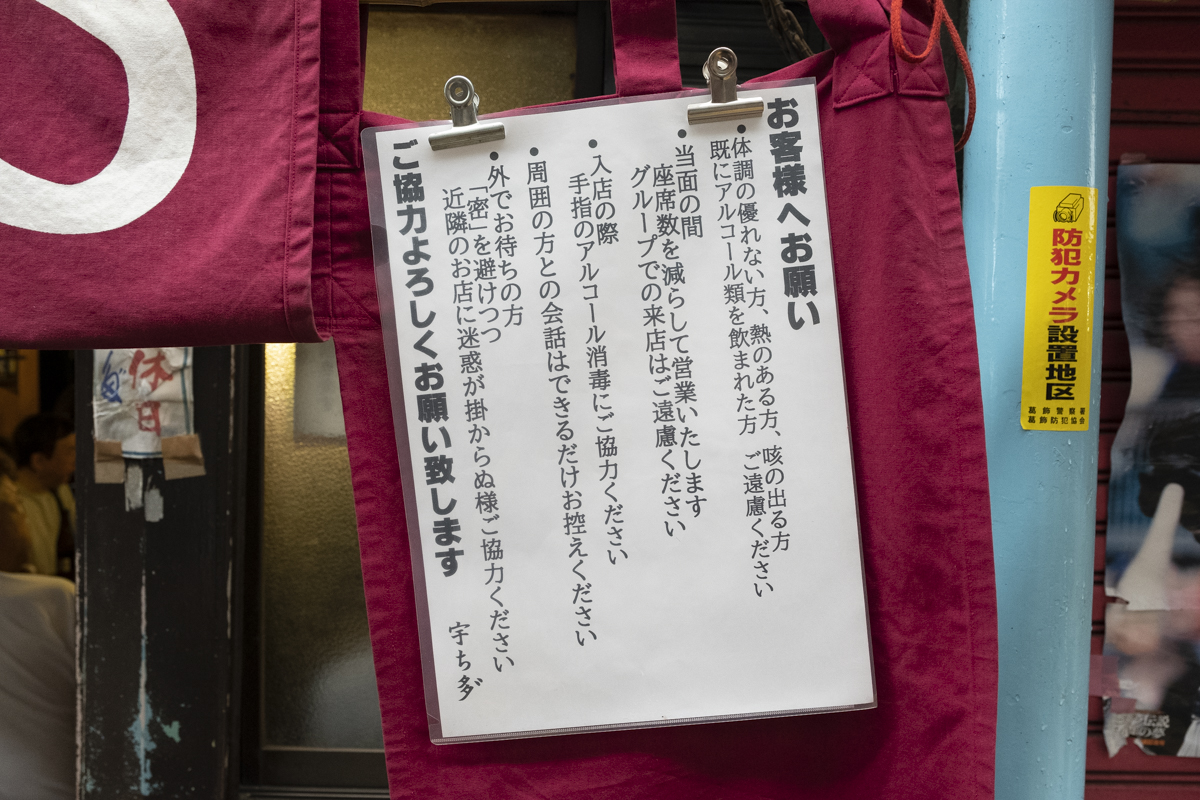 お客様へお願い
・体調の優れない方、熱のある方、咳の出る方
既にアルコール類を飲まれた方 ご遠慮ください
・当面の間
座席数を減らして営業いたします
グループでの来店はご遠慮ください
・入店の際
手指のアルコール消毒にご協力ください
・周囲の方との会話はできるだけお控えください
・外でお待ちの方
「密」を避けつつ
近隣のお店に迷惑が掛からぬ様ご協力ください
ご協力よろしくお願い致します
宇ち多゛
防犯カメラ設置地区
葛飾警察署
葛飾防犯協会
休日